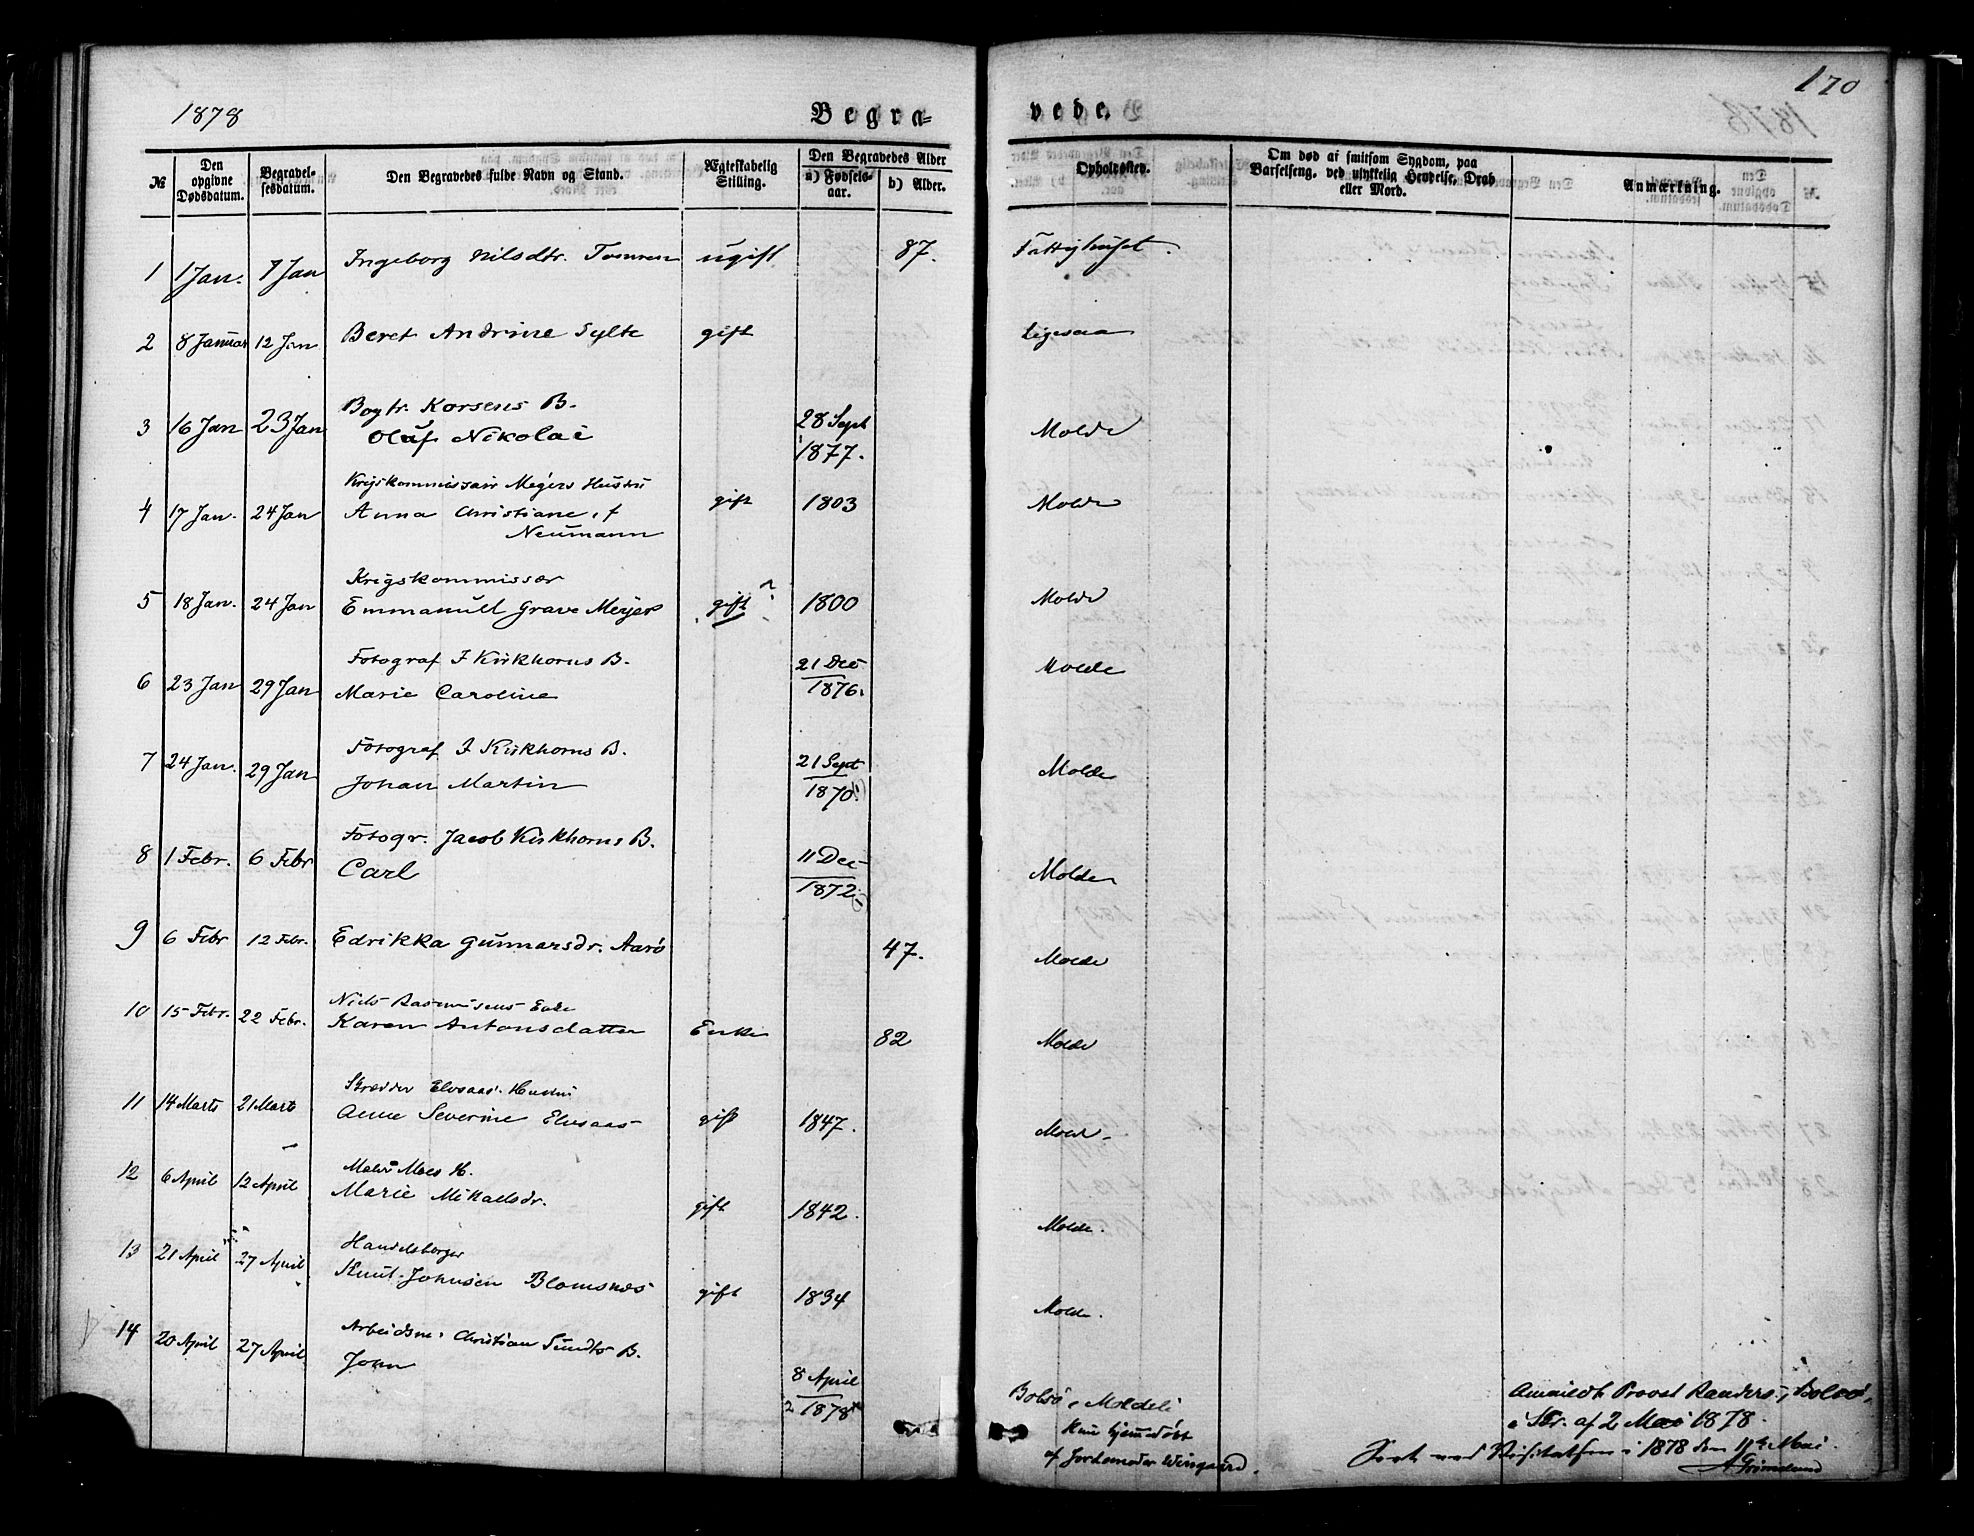 1878
Begra-
vede.
170
№
Den opgivne Dødsdatum.
Begravelsesdatum.
Den Begravedes fulde Navn og Stand.
Ægteskabelig Stilling.
Den Begravedes Alder
a) Fødselsaar.
b) Alder.
Opholdssted.
Om død af smitsom Sygdom, paa Barselseng, ved ulykkelig Hendelse, Drab eller Mord.
Anmærkning.
1 1 Jan. 7 Jan Ingeborg Nilsdtr. Tomren ugift 87. Fattighuset.
2 8 Januar 12 Jan Beret Andrine Sylte gift Ligesaa
3 16 Jan 23 Jan Bogtr. Korsens B.
Oluf Nikolai 28 Sept 1877. Molde
4 17 Jan. 24 Jan Krigskommissair Meyers Hustru
Anna Christiane, f
Neumann gift 1803 Molde
5 18 Jan. 24 Jan Krigskommissær
Emmanuel Grave Meyer gift ? 1800 Molde
6 23 Jan 29 Jan Fotograf J Kirkhorns B.
Marie Caroline 21 Dec 1876. Molde
7 24 Jan. 29 Jan Fotograf J Kirkhorns B.
Johan Martin 21 Sept 1870. Molde
8 1 Febr. 6 Febr Fotogr. Jacob Kirkhorns B.
Carl 11 Dec 1872. Molde
9 6 Febr 12 Febr. Edrikka Gunnarsdr. Aarø 47. Molde
10 15 Febr. 22 Febr. Niels Rasmusens Enke
Karen Antonsdatter Enke 82 Molde
11 14 Marts 21 Marts Skrædder Elvsaas' Hustru
Anne Severine Elvsaas gift 1847. Molde
12 6 April 12 April Moes H.
Marie Mikaelsdr. gift 1842. Molde.
13 21 April 27 April Handelsborger
Knut Johnsen Blomsnæs gift 1834 Molde.
14 20 April 27 April Arbeidsm. Christian Sundts B.
John 8 April 1878 Bolsø, Moldeli
kun hjemdøbt
af Jordemoder Wingaard.
Anmeldt Provst Randers, Bolsø,
i Skr. af 2 Mai 1878.
Seet ved Visitatsen i 1878 den 11te Mai.
AGrimelund